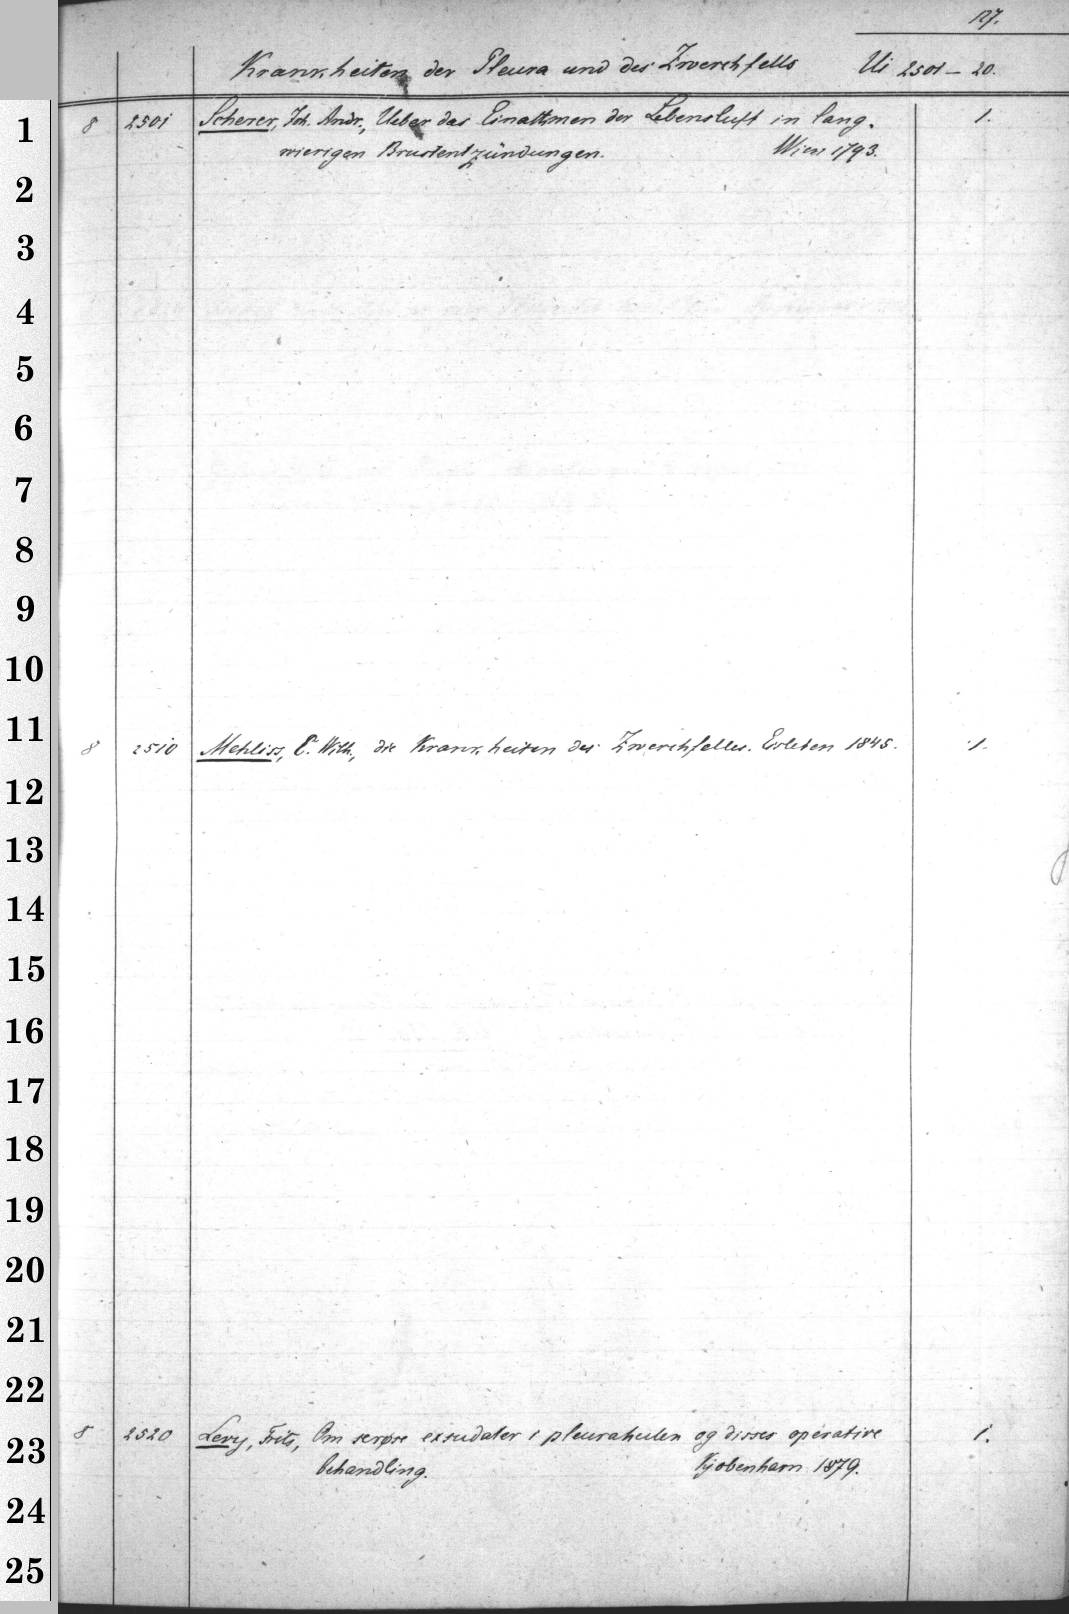 127.
Krankheiten der Pleura und des Zwerchfells Ui 2501 – 20.
1 8 2501 Scherer, Joh. Andr., Ueber das Einathmen der Lebensluft in lang- 1.
wierigen Brustentzündungen. Wien 1793.
2
3
4
5
6
7
8
9
10
11 8 2510 Mehliss, C. Wilh., die Krankheiten des Zwerchfelles. Eisleben 1845. 1.
12
13
14
15
16
17
18
19
20
21
22
23 8 2520 Levy, Frits, Om serøse exsudater i pleurahulen og disses operative 1.
behandling. Kjobenhavn 1879.
24
25